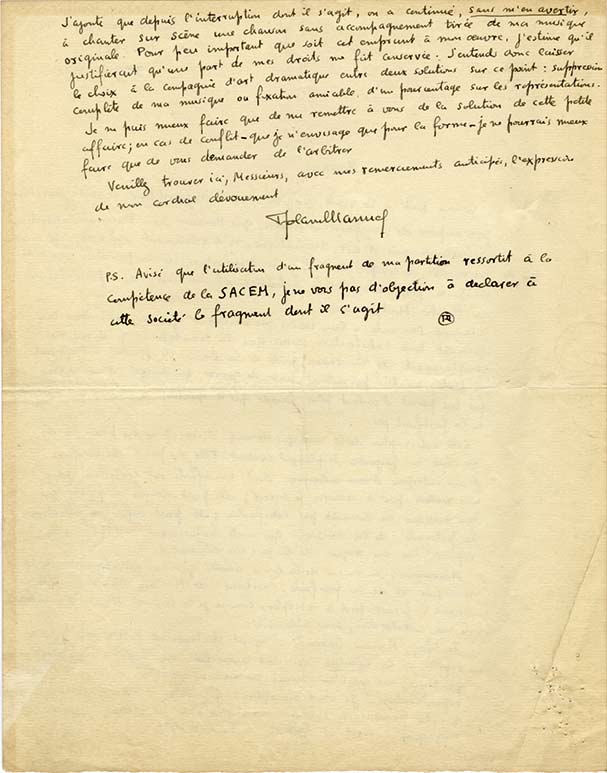 J'ajoute que depuis l'interruption dont il s'agit, on a continué, sans m'en avertir,
à chanter sur scène une chanson sans accompagnement tirée de ma musique
originale. Pour peu important que soit cet emprunt à mon œuvre, j'estime qu'il
justifierait qu'une part de mes droits me fût conservée. J'entends donc laisser
le choix à la compagnie d'art dramatique entre deux solutions sur ce point : suppression
complète de ma musique ou fixation amiable d'un pourcentage sur les représentations.
Je ne puis mieux faire que de me remettre à vous de la solution de cette petite
affaire; en cas de conflit - que je n'envisage que pour la forme - je ne pourrais mieux
faire que de vous demander de l'arbitrer
Veuillez trouver ici, Messieurs, avec mes remerciements anticipés, l'expression
de mon cordial dévouement
Roland Manuel
P.S. Avisé que l'utilisation d'un fragment de ma partition ressortit à la
compétence de la SACEM, je ne vois pas d'objection à déclarer à
cette société le fragment dont il s'agit